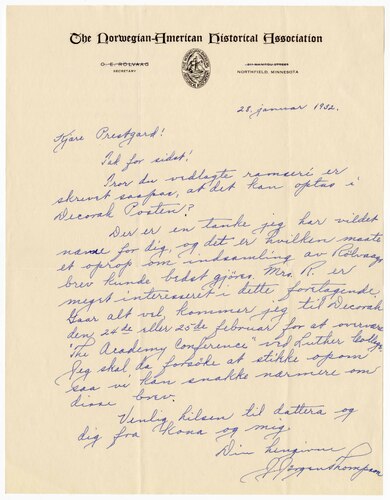 The Norwegian-American Historical Association
O. E. RÖLVAAG
SECRETARY
MANITOU STREET
NORTHFIELD, MINNESOTA
28. januar 1932.
Kjære Prestgard!
Tak for sidst!
Tror du vedlagte ramseri er
skrevet saapas, at det kan optas i
Decorah Posten?
Der er en tanke jeg har vildet
nævne for dig, og det er hvilken maate
et oprop om indsamling av Rölvaag
brev kunde bedst gjöres. Mrs. R. er
meget interesseret i dette foretagende.
Gaar alt vel, kommer jeg til Decorah
den 24de eller 25de februar for at overvære
"The Academy Conference" ved Luther College.
Jeg skal da forsöke at stikke opom
saa vi kan snakke nærmere om
disse brev.
Venlig hilsen til dattera og
dig fra kona og mig.
Din hengivne
J. Jörgen Thompson